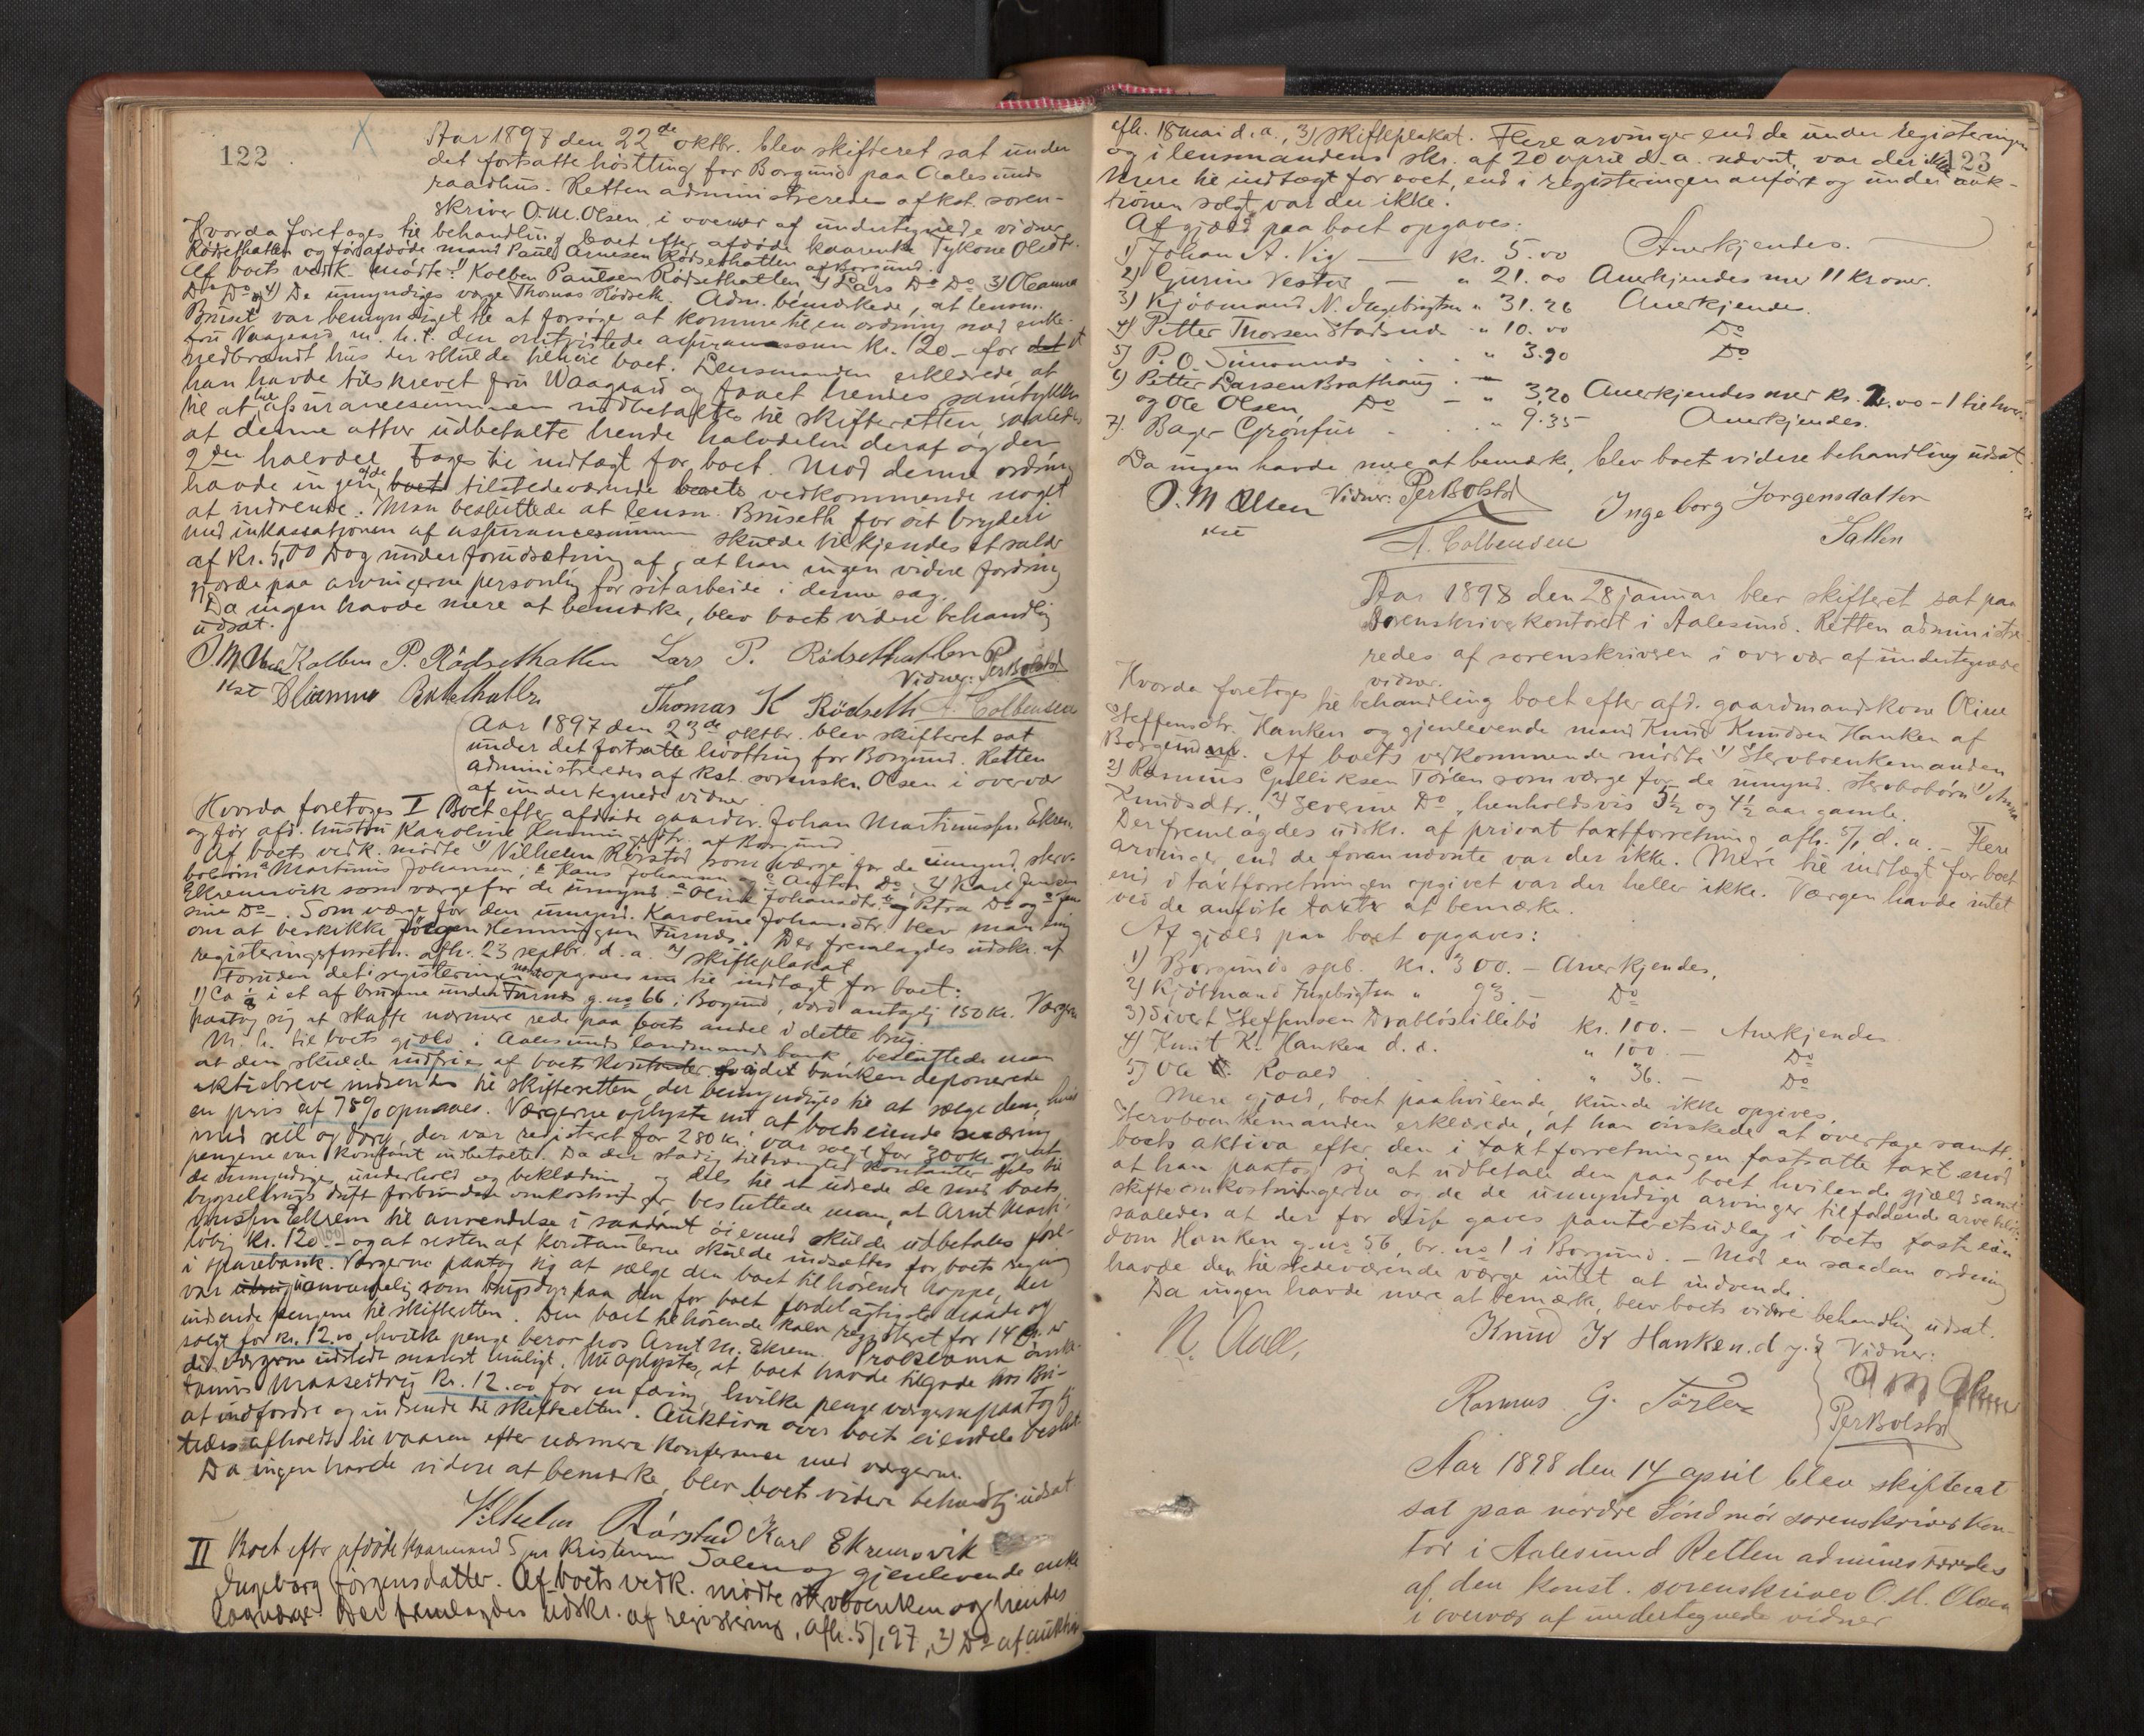 122
Aar 1897 den 22de oktbr. blev skifteret sat under
det fortsatte høstting for Borgund paa Aalesunds
raadhus. Retten administreredes af kst. soren-
skriver O.M. Olsen i overvær af undertegnede vidner
Hvorda foretoges til behandling boet efter afdøde kaarenke Sykone Olsdtr.
Rødsethatlen og før afdøde mand Paul Arnesen Rødsethatlen af Borgund.
Af boets vedk. mødte: Kolben Paulsen Rødsethatlen 2) Lars Do Do 3) Oleanna
Do Do og 4) De umyndiges værge Thomas Rødseth. Adm. bemærkede, at lensm.
Bruset var bemyndiget til at forsøge at komme til en ordning med enke-
fru Vaagaard m. h. t. den omtvistede assurancesum kr. 120 – for det et
nedbrændt hus der skulde tilhøre boet. Lensmanden erklærede at
han havde tilskrevet fru Waagaard og faaet hendes samtykke
til at hele assurancesummen udbetaltes til skifteretten, saaledes
at denne atter udbetalte hende halvdelen deraf og den
2den halvdel toges til indtægt for boet. Mod denne ordning
havde ingen af de boet tilstedeværende boets vedkommende noget
at indvende. Man besluttede at lensm. Bruseth for sit bryderi
med inkassationen af assurancesummen skulde tilkjendes et salær
af kr. 5,00 Dog under forudsætning af, at han ingen videre fordring
gjorde paa arvingerne personlig for sit arbeide i denne sag.
Da ingen havde mere at bemærke, blev boets videre behandlig
udsat.
O.M. Olsen Kolben P. Rødsethatlen Lars P. Rødsethatlen Per Bolstad
kst Vidner:
Thomas K Rødseth A. Colbensen
Aar 1897 den 23de oktbr. blev skifteret sat
under det fortsatte høstting for Borgund. Retten
administreredes af kst. sorenskr. Olsen i overvær
af undertegnede vidner.
Hvorda foretoges I Boet efter afdøde gaardbr. Johan Martinussen Ekrem
og før afd. hustru Karoline Henningsdtr. af Borgund
Af boets vedk. mødte 1) Vilhelm Rørstad som værge for de umynd. sterv-
bobørn a Martinus Johansen, b Hans Johansen og c Anton Do 2) Karl Jensen
Ekremsvik som værge for de umynd. a Oline Johansdtr. b og Petra Do og c
sine Do –. Som værge for den umynd. Karoline Johansdtr. blev man enig
om at beskikke Jørgen Henningsen Furnes. Der fremlagdes udskr. af
registeringsforretn. afh. 23 septbr. d. a. 2) skifteplakat
Foruden det i registeringen nævnte opgaves nu til indtægt for boet:
1) Ca i et af brugene under Furnes g. no 66 i Borgund, værd antagelig 150 kr. Værgen
paatog sig at skaffe nærmere rede paa boets andel i dette brug.
M. h. til boets gjæld i Aalesunds landmandsbank, besluttede man
at den skulde indfries af boets kontanter og i det banken deponerede
aktiebreve indsendes til skifteretten, der bemyndiges til at sælge dem, hvis
en pris af 75% opnaaes. Værgerne oplyste nu at boets eiende
med seil og dorg, der var registeret for 280 kr. var solgt for 300 kr og at
pengene var kontant indbetalt. Da der stadig tiltrængtes kontanter dels til
de umyndiges underhold og beklædning og dels til at udrede de med boets
drift forbundne omkostninger besluttede man, at Arnt Marti-
nussen Ekrem til anvendelse i saadant øiemed skulde udbetales fore-
løbig kr. 120.– og at resten af kontanterne skulde indsættes for boets regning
i sparebank. Værgerne paatog sig at sælge den boet tilhørende hoppe, der
var uanvendelig som brugsdyr paa den for boet fordelagtigste maade og
indsende pengene til skifteretten. Den boet tilhørende kalv registeret for 14 kr. er
solgt for kr. 12.00 hvilke penge beror hos Arnt M. Ekrem. Proclama
des værgerne udstedt snarest muligt. Nu oplystes, at boet havde tilgode hos Bri-
kr. 12.00 for en færing, hvilke penge værgerne paatog sig
at indfordre og indsende til skifteretten. Auktion over boets eiendele beslut-
tedes afholdt til vaaren efter nærmere konferance med værgerne.
Da ingen havde videre at bemærke, blev boets videre behandlig udsat
Vilhelm Rørstad Karl Ekremsvik
II Boet efter afdøde kaarmand Kristensen Satlen og gjenlevende enke
Ingeborg Jørgensdatter. Af boets vedk. mødte stervboenken og hendes
laugværge. Der fremlagdes udskr. af registering, afh. 5/1 97, 2) Do af auktion
123
afh. 18 mai d. a., 3) skifteplakat. Flere arvinger end de under registeringen
og i lensmandens skr. af 20 april d. a. nævnt, var der ikke
Mere til indtægt for boet, end i registeringen anført og under auk-
tionen solgt var der ikke.
Af gjæld paa boet opgaves:
1) Johan A. Vig — kr. 5.00 Anerkjendes.
2) Gurine Vestre — " 21.00 Anerkjendes mer 11 kroner.
3) Kjøbmand N. Ingebrigtsen " 31.26 Anerkjendes.
4) Petter Thorsen Stadsnde " 10.00 Do
5) P. O. Simonnes " 3.90 Do
6) Petter Larsen Brathaug . —
og Ole Olsen Do — " 3,20 Anerkjendes mer kr. 2.00 – 1 til hver
7) Bager Grønfur " 9.35 Anerkjendes.
Da ingen havde mere at bemærke, blev boets videre behandling udsat
O. M Olsen Vidner: Per Bolstad
kst A. Colbensen
Ingeborg Jorgensdatter
Satlen
Aar 1898 den 28 januar blev skifteret sat paa
Sorenskriverkontoret i Aalesund. Retten administre-
redes af sorenskriveren i overvær af undertegnede
vidner.
Hvorda foretoges til behandling boet efter afd. gaardmandskone Oline
Steffensdtr. Hanken og gjenlevende mand Knud Knudsen Hanken af
Borgund. Af boets vedkommende mødte 1) Stervboenkemanden
2) Rasmus Gulliksen Tørlen som værge for de umynd. stervbobørn 1) Anna
Knudsdtr., 2) Severine Do, henholdsvis 5½ og 4½ aar gamle.
Der fremlagdes udskr. af privat taxtforretning, afh. 5/1 d. a. – Flere
arvinger end de foran nævnte var der ikke. Mere til indtægt for boet
end i taxtforretningen opgivet var der heller ikke. Værgen havde intet
ved de anførte taxter at bemærke.
Af gjæld paa boet opgaves:
1) Borgunds spb. kr. 300. – Anerkjendes.
2) Kjøbmand Ingebrigtsen " 93 – Do
3) Sivert Steffensen Drabløstillebø kr. 100. – Anerkjendes
4) Knut K. Hanken d. æ. " 100. – Do
5) Ole Roald " 36. – Do
Mere gjæld, boet paahvilende, kunde ikke opgives.
Stervboenkemanden erklærede, at han ønskede at overtage samtl.
boets aktiva efter den i taxtforretningen fastsatte taxt mod
at han paatog sig at udbetale den paa boet hvilende gjæld samt
skifteomkostningerne og de de umyndige arvinger tilfaldende arvelodder
saaledes at der for disse gaves panteretsudlæg i boets faste eien-
dom Hanken g. no 56, br. no 1 i Borgund. – Mod en saadan ordning
havde den tilstedeværende værge intet at indvende.
Da ingen havde mere at bemærke, blev boets videre behandling udsat.
N. Aall, Knud K Hanken. d y. Vidner:
Rasmus G. Tørlen Per Bolstad
Aar 1898 den 14 april blev skifteret
sat paa nordre Søndmør sorenskriverkon-
tor i Aalesund Retten administreredes
af den konst. sorenskriver O. M. Olsen
i overvær af undertegnede vidner